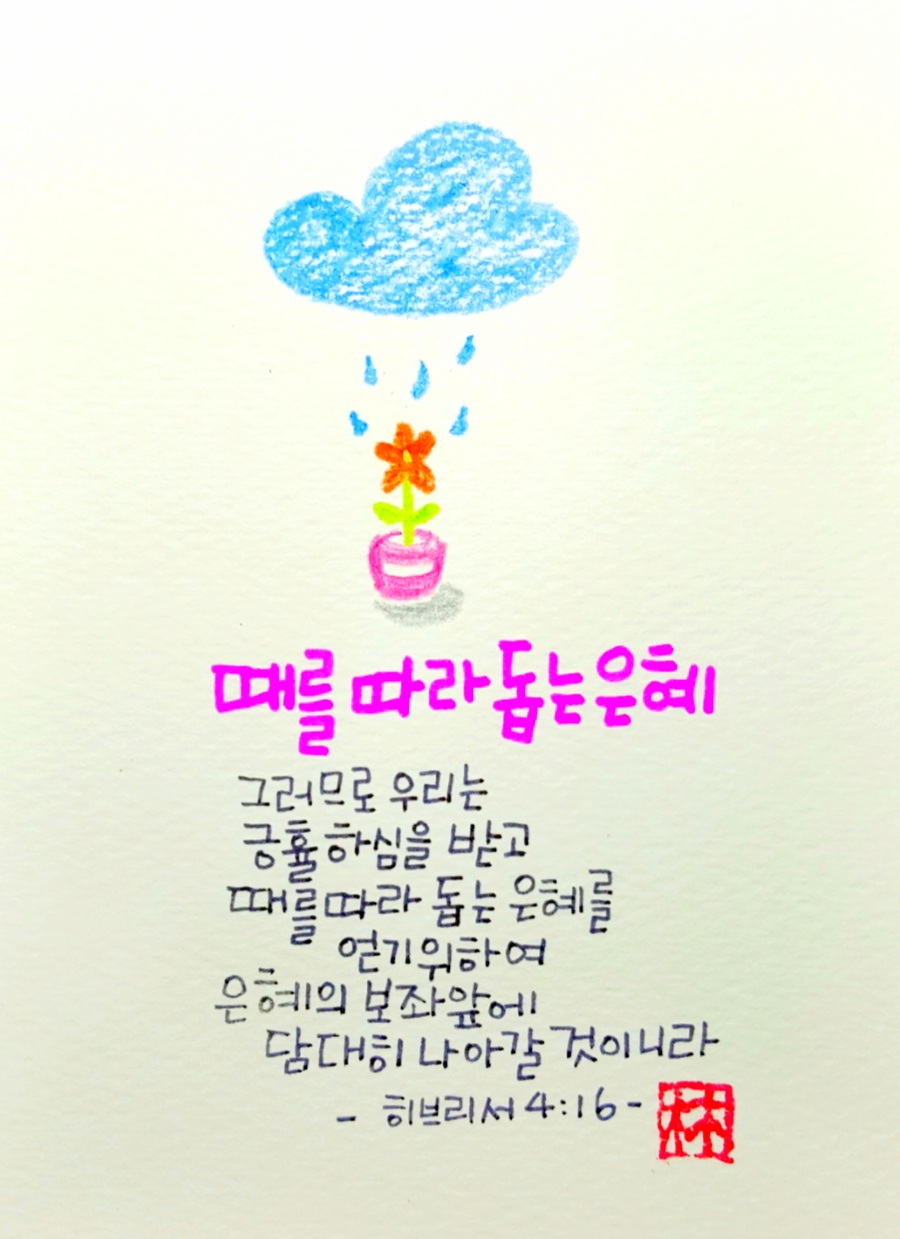 때를 따라 돕는 은혜
그러므로 우리는
긍휼하심을 받고
때를따라 돕는 은혜를
얻기위하여
은혜의 보좌앞에
담대히 나아갈 것이니라
- 히브리서 4:16 -